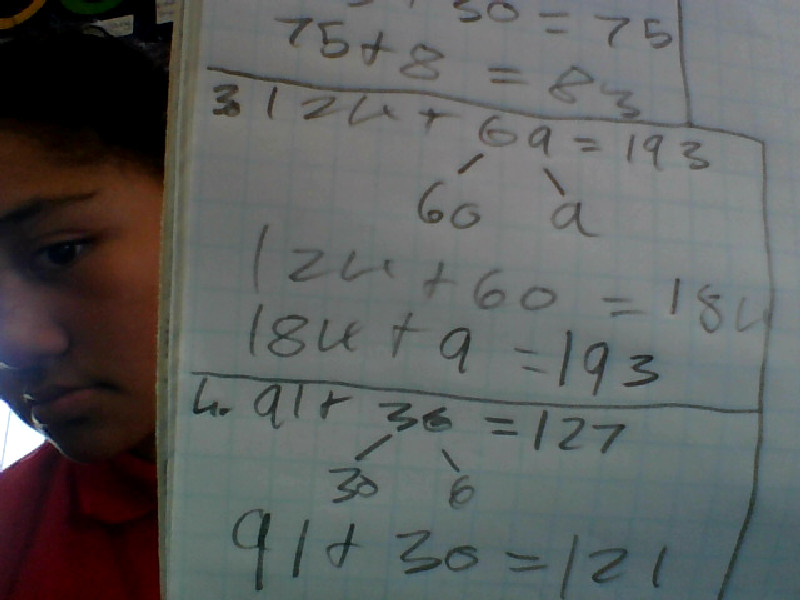 30 = 75
75+8 = 83
3. 124 + 69 = 193
60 9
124 + 60 = 184
184 + 9 = 193
4. 91+ 36 = 127
30 6
91 + 30 = 121